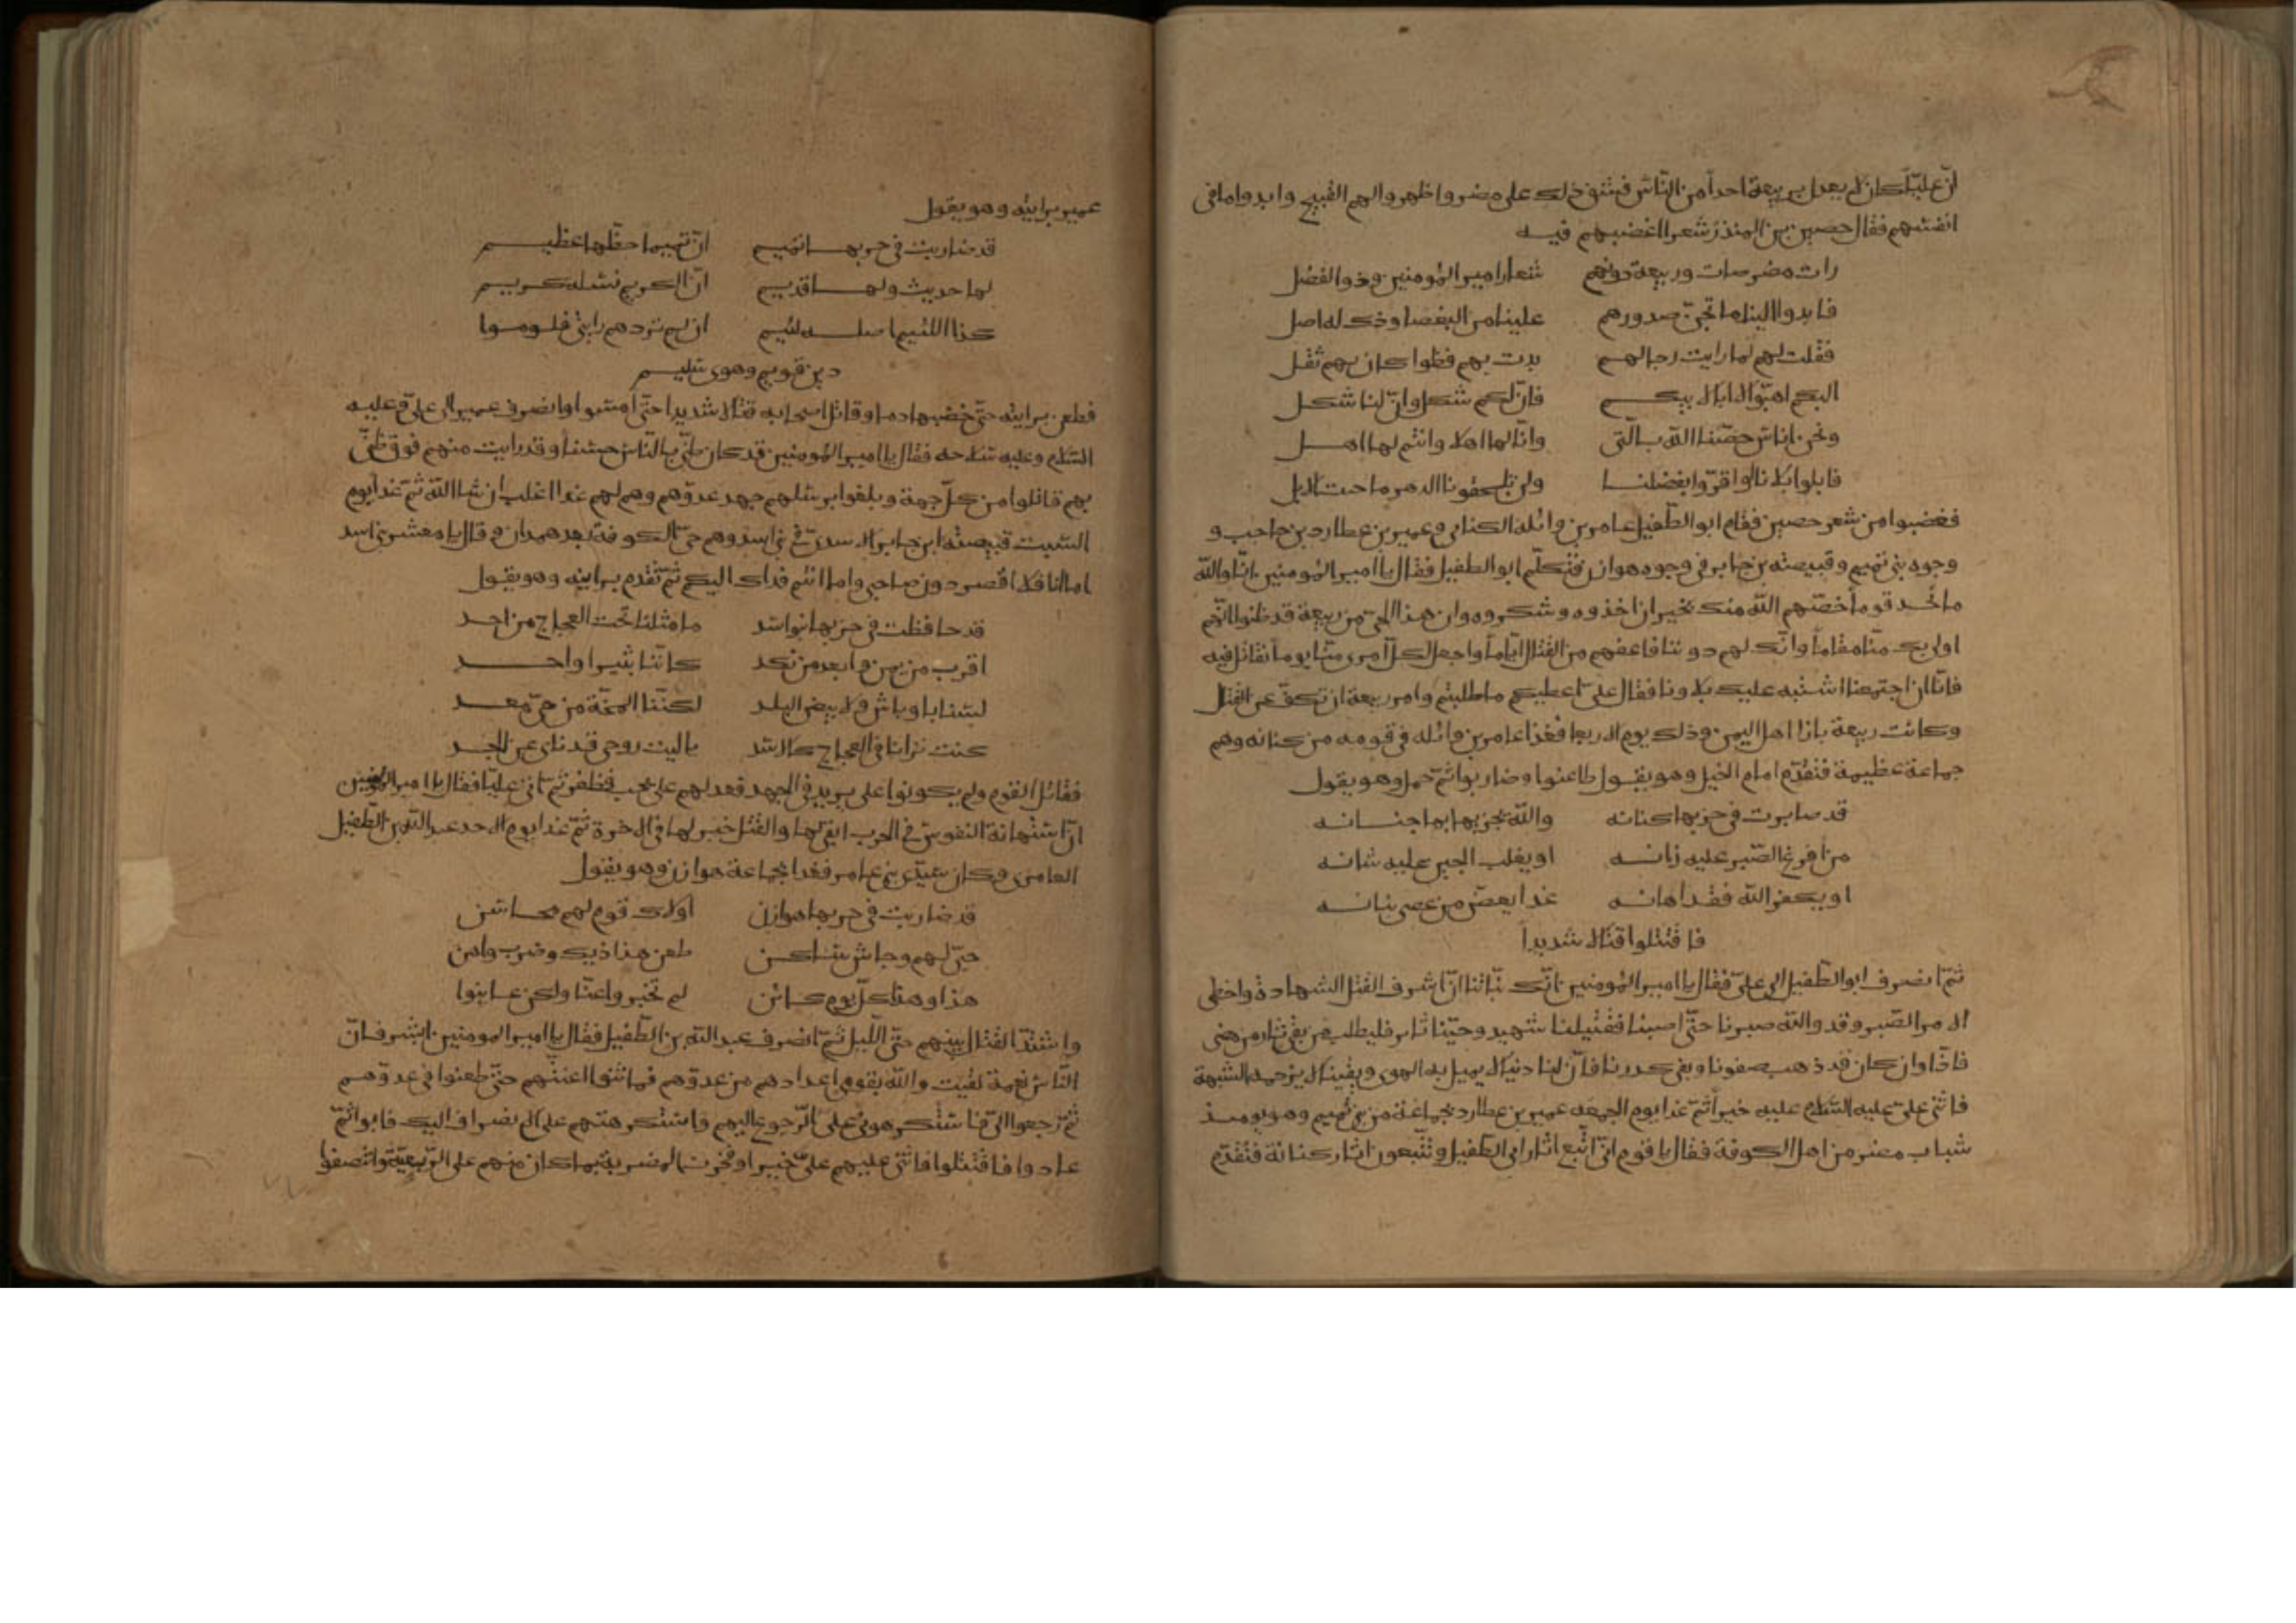 انّ عليّا كان لا يعدل بربيعة احداً من النّاس فشق ذلك على مضر واظهروا لهم القبيح وابدوا ما في
انفسهم فقال حصين بن المنذر شعرا اغضبهم فيه
رات مضر صارت ربيعة دونهم شعار امير المؤمنين وذو الفضل
فابدوا الينا ما تجنّ صدورهم علينا من البغضا وذك له اصل
فقلت لهم لما رايت رجالهم بدت بهم قطوا كان بهم ثقل
اليكم اهبّوا لا ابا لابيكم فانّ لكم شكل وانّ لنا شكل
ونحن اناس خصّنا الله بالّتي وانّا لها اهلا وانتم لها اهل
فابلوا بلانا او اقرّوا بفضلنا ولن تلحقونا الدهر ما حنت الابل
فغضبوا من شعر حصين فقام ابو الطّفيل عامر بن واثلة الكناني وعمير بن عطارد بن حاجب و
وجوه بني تميم وقبيصة بن جابر في وجوه هوازن فتكلّم ابو الطفيل فقال يا امير المؤمنين انّا والله
ما نحسد قوما خصّهم الله منك بخير ان اخذوه وشكروه وان هذا الحيّ من ربيعة قد ظنوا انّهم
اولى بك منّا مقاماً وانّك لهم دوننا فاعفهم من القتال ايّاماً واجعل لكلّ امرى منّا يوماً نقاتل فيه
فانّا ان اجتمعنا اشتبه عليك بلاونا فقال علىّ اعطيكم ما طلبتم وامر ربيعة ان تكفّ عن القتال
وكانت ربيعة بازا اهل اليمن وذلك يوم الاربعا فغدا عامر بن واثله في قومه من كنانه وهم
جماعة عظيمة فتقدّم امام الخيل وهو يقول طاعنوا وضاربوا ثمّ حمل وهو يقول
قد صابرت في حربها كنانه والله يجزيها بها جنانه
من افرغ الصّبر عليه زانه او يغلب الجبن عليه شانه
او يكفر الله فقد اهانه غدا يعضّ من عصى بنانه
فاقتتلوا قتالا شديداً
ثمّ انصرف ابو الطّفيل الى علىّ فقال يا امير المؤمنين انّك نبّاتنا انّ اشرف القتل الشهادة واحظى
الامر الصّبر وقد والله صبرنا حتّى اصبنا فقتيلنا شهيد وحيّنا ثاير فليطلب من بقي بثار من مضى
فانّا وان كان قد ذهب صفونا وبقي كدرنا فانّ لنا دينا لا يميل به الهوى ويقينا لا يزحمه الشبهة
فاثنى علىّ عليه السّلام عليه خيراً ثمّ غدا يوم الجمعه عمير بن عطارد بجماعة من بني تميم وهو يومئذ
شباب مضر من اهل الكوفة فقال يا قوم انّي اتّبع اثار ابى الطّفيل وتتّبعون اثار كنانة فتقدّم
عمير برايته وهو يقول
قد ضاربت في حربها تميم انّ تميما حظّها عظيم
لها حديث ولها قديم انّ الكريم نسله كريم
كذا اللئيم اصله لئيم ان لم تزدهم رايتى فلوموا
دين قويم وهوى سليم
فطعن برايته حتّى خضبها دما وقاتل اصحابه قتالا شديدا حتّى امسوا وانصرف عمير الى علىّ وعليه
السّلام وعليه سلاحه فقال يا امير المؤمنين قد كان ظنّي بالنّاس حسنا وقد رايت منهم فوق ظنّي
بهم قاتلوا من كلّ جهة وبلغوا برسلهم جهد عدوّهم وهم لهم غدا اغلب ان شا الله ثمّ غدا يوم
السّبت قبيصة ابن جابر الاسديّ في بني اسد وهم حيّ الكوفة بعد همدان وقال يا معشر بني اسد
اما انا فلا اقصر دون صاحبي واما انتم فذاك اليكم ثمّ تقدم برايته وهو يقول
قد حافظت في حربها بنو اسد ما مثلنا تحت العجاج من احد
اقرب من يمن وابعد من نكد كانّنا ثبيرا واحد
لسنا باوباش ولا بيض البلد لكنّنا المخّة من حيّ معد
كنت ترانا في العجاج كالاسد ياليت روحي قد نأى عن الجسد
فقاتل القوم ولم يكونوا على ما يريد في الجهد فعدلهم على ما يحب فظفر ثمّ اتى عليّا فقال يا امير المؤمنين
انّ استهانة النفوس في الحرب ابقى لها والقتل خير لها في الاخرة ثمّ غدا يوم الاحد عبد الله بن الطّفيل
العامري وكان سيّد بني عامر فغدا بجماعة هوازن وهو يقول
قد ضاربت في حربها هوازن اولاك قوم لهم محاسن
حبّي لهم وجاش ساكن طعن هذاذيك وضرب واهن
هذا وهذا كلّ يوم كائن لم تخبروا عنّا ولكن عاينوا
واشتدّ القتال بينهم حتّى اللّيل ثمّ انصرف عبد الله بن الطّفيل فقال يا امير المومنين ابشر فانّ
النّاس نغمة لقيت والله بقومي اعدادهم من عدوّهم فما ثنوا اعنّتهم حتّى طعنوا في عدوّهم
ثمّ رجعوا الىّ فاستكرهوني على الرّجوع اليهم واستكرهتهم على الانصراف اليك فابوا ثمّ
عادوا فاقتتلوا فاثنى عليهم علىّ خيرا وفخرت المضرية بما كان منهم على الرّبعيّة وانتصفوا